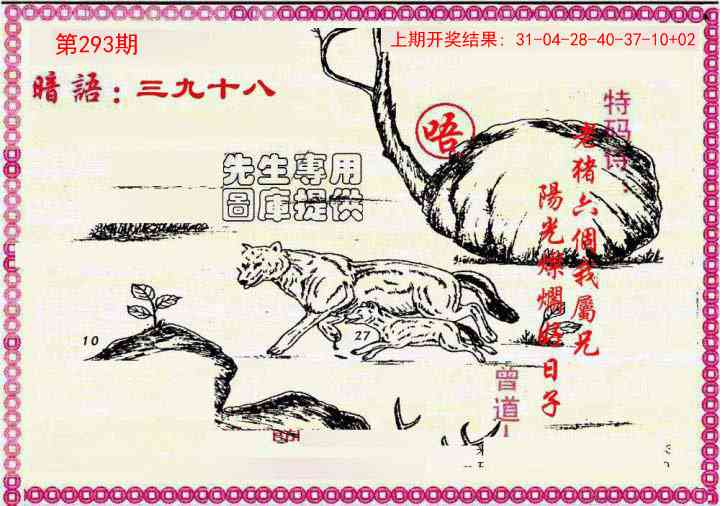 第293期
上期开奖结果：31-04-28-40-37-10+02
暗語：三九十八
唔
特码诗：
老猪六個我屬兄
陽光燦爛好日子
先生專用
圖庫提供
10
27
曾道